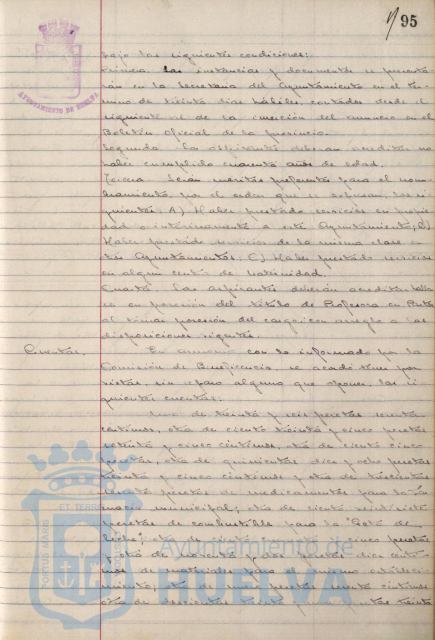 95
AYUNTAMIENTO DE HUELVA
bajo las siguientes condiciones:
Primera. Las instancias y documentos se presenta-
rán en la Secretaría del Ayuntamiento en el tér-
mino de treinta días hábiles, contados desde el
siguiente al de la inserción del anuncio en el
Boletín Oficial de la provincia.
Segunda. Las aspirantes deberán acreditar no
haber cumplido cuarenta años de edad.
Tercera. Serán méritos preferentes para el nom-
bramiento, por el orden que se expresan, los si-
guientes: A) Haber prestado servicios en propie-
dad o interinamente a este Ayuntamiento; B)
Haber prestado servicios de la misma clase en
otros Ayuntamientos; C) Haber prestado servicios
en algún centro de Maternidad.
Cuarta. Las aspirantes deberán acreditar
en posesión del título de Profesora en Partos
al tomar posesión del cargo con arreglo a las
disposiciones vigentes.
Cuentas. En armonía con lo informado por la
Comisión de Beneficencia, se acordó tener por
vistas, sin reparo alguno que oponer, las si-
guientes cuentas:
Una de treinta y seis pesetas
céntimos, otra de ciento treinta y cinco pesetas
setenta y cinco céntimos, otra de ciento cinco
pesetas, otra de quinientas diez y ocho pesetas
treinta y cinco céntimos y otra de trescientas
pesetas de medicamentos para la Far-
macia municipal; otra de ciento veintisiete
pesetas de combustible para la "Gota de
Leche"; otra de cinco pesetas
y otra de pesetas diez cénti-
mos de materiales para el mismo estableci-
miento; otra de pesetas céntimos
otra de doscientas treinta y pesetas treinta
PORTUS MARIS ET TERRAE
Ayuntamiento de
HUELVA